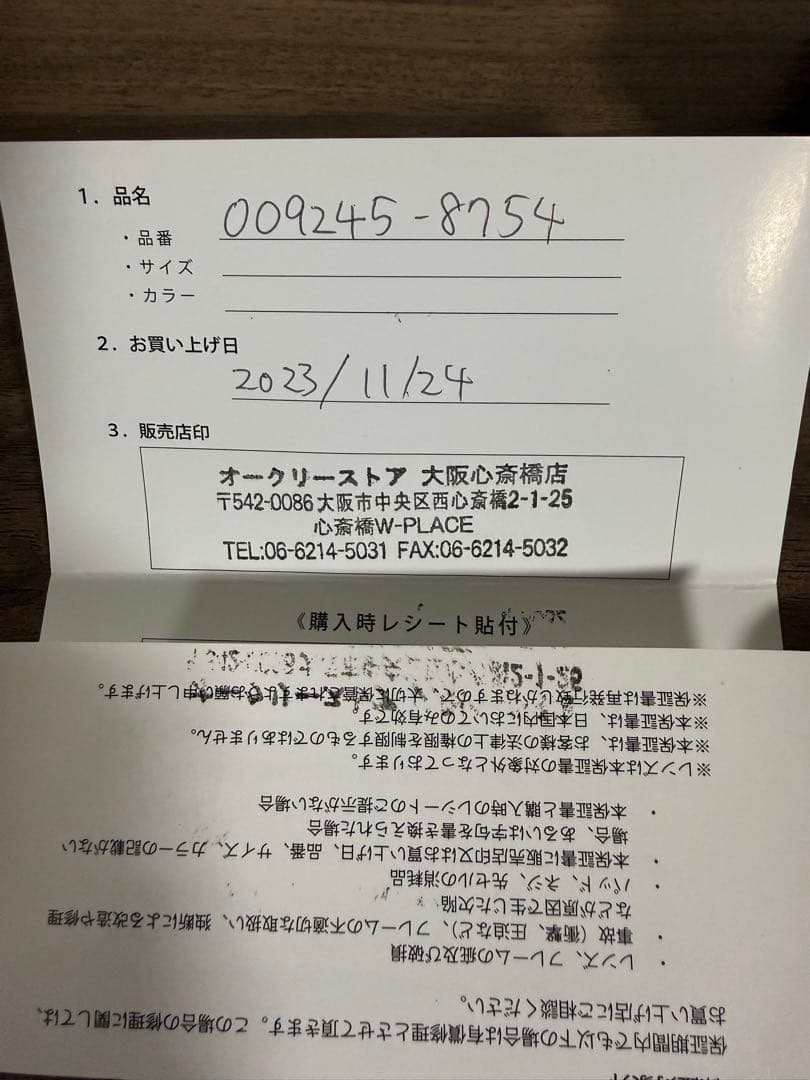 1. 品名
・品番 009245-8754
・サイズ
・カラー
2. お買い上げ日
2023/11/24
3. 販売店印
オークリーストア 大阪心斎橋店
〒542-0086 大阪市中央区西心斎橋2-1-25
心斎橋W-PLACE
TEL:06-6214-5031 FAX:06-6214-5032
《購入時レシート貼付》
保証期間内でも以下の場合は有償修理とさせて頂きます。この場合の修理に関しては、
お買い上げ店にご相談ください。
・レンズ、フレームの疵及び破損
・事故（衝撃、圧迫など）、フレームの不適切な取扱い、独断による改造や修理
などが原因で生じた欠陥
・パッド、ネジ、先セルの消耗品
・本保証書に販売店印又はお買い上げ日、品番、サイズ、カラーの記載がない
場合、あるいは字句を書き換えられた場合
・本保証書と購入時のレシートのご提示がない場合
※レンズは本保証書の対象外となっております。
※本保証書は、お客様の法律上の権限を制限するものではありません。
※本保証書は、日本国内においてのみ有効です。
※保証書は再発行致しかねますので、大切に保管されますようお願い申し上げます。